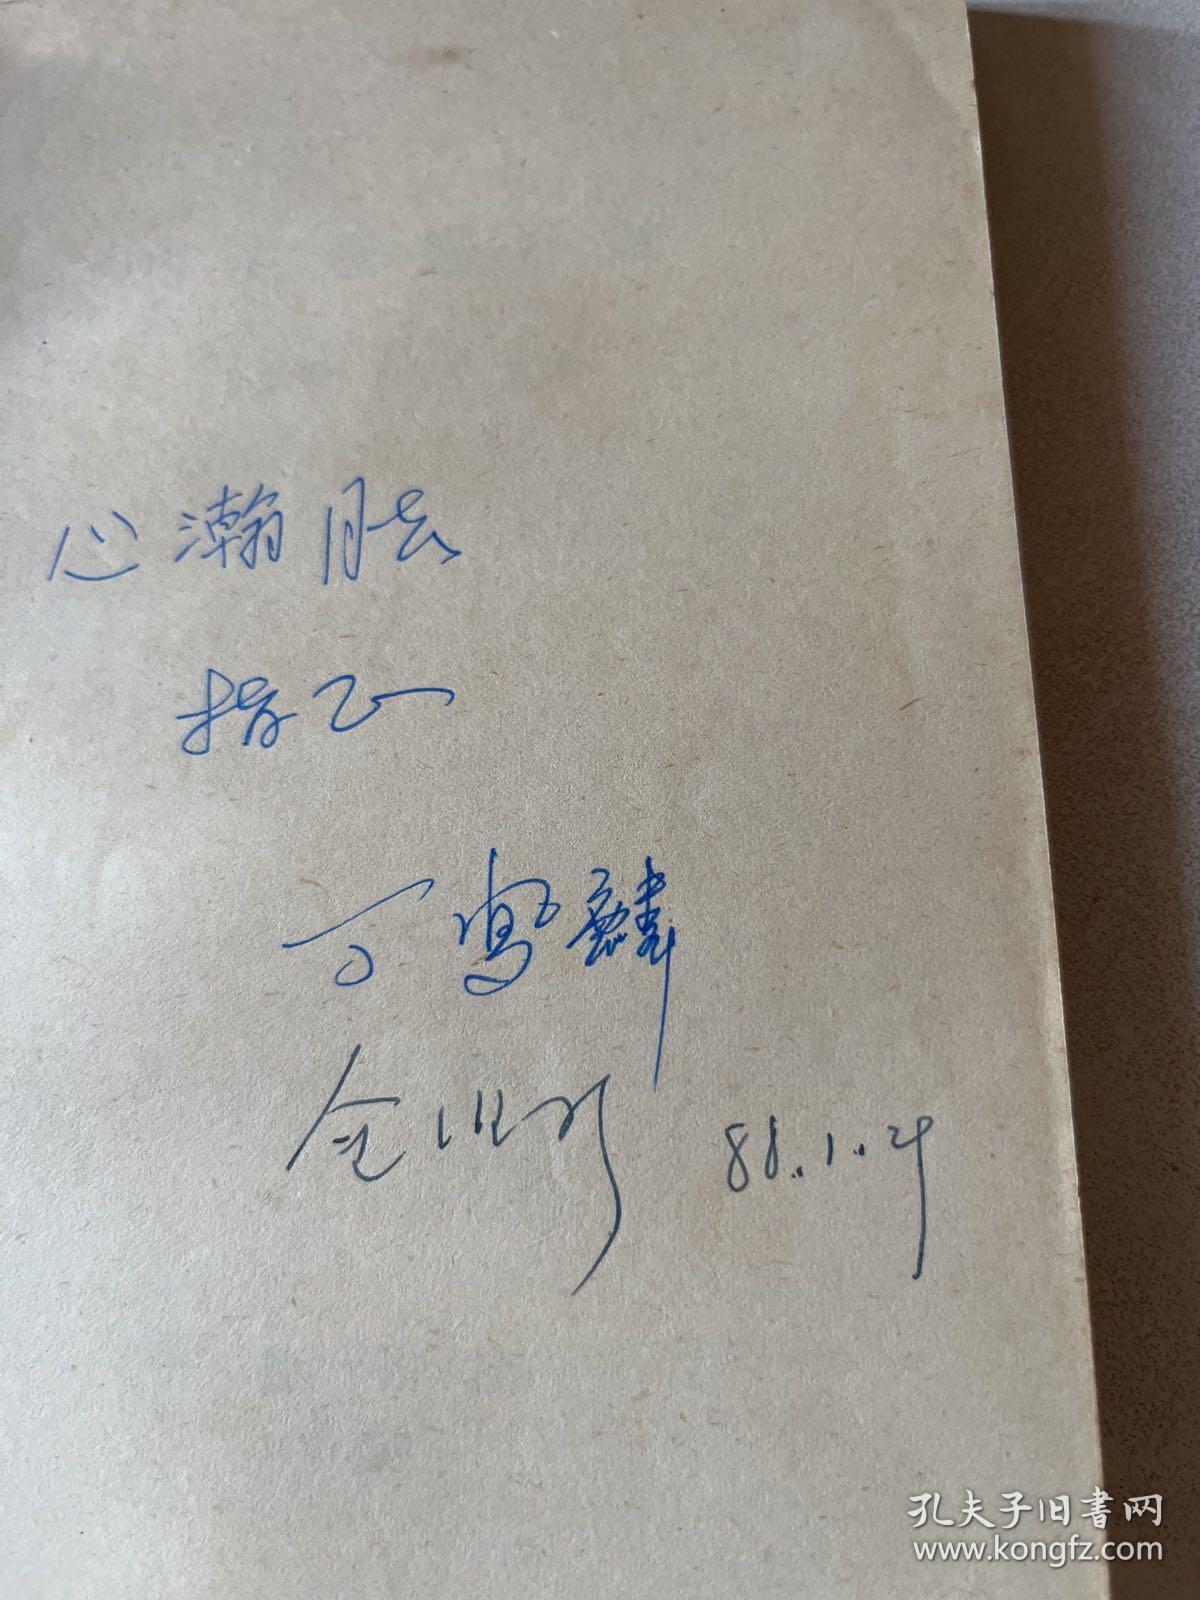 心瀚兄
指正
丁凤麟
金
88.1.29
孔夫子旧书网
www.kongfz.com